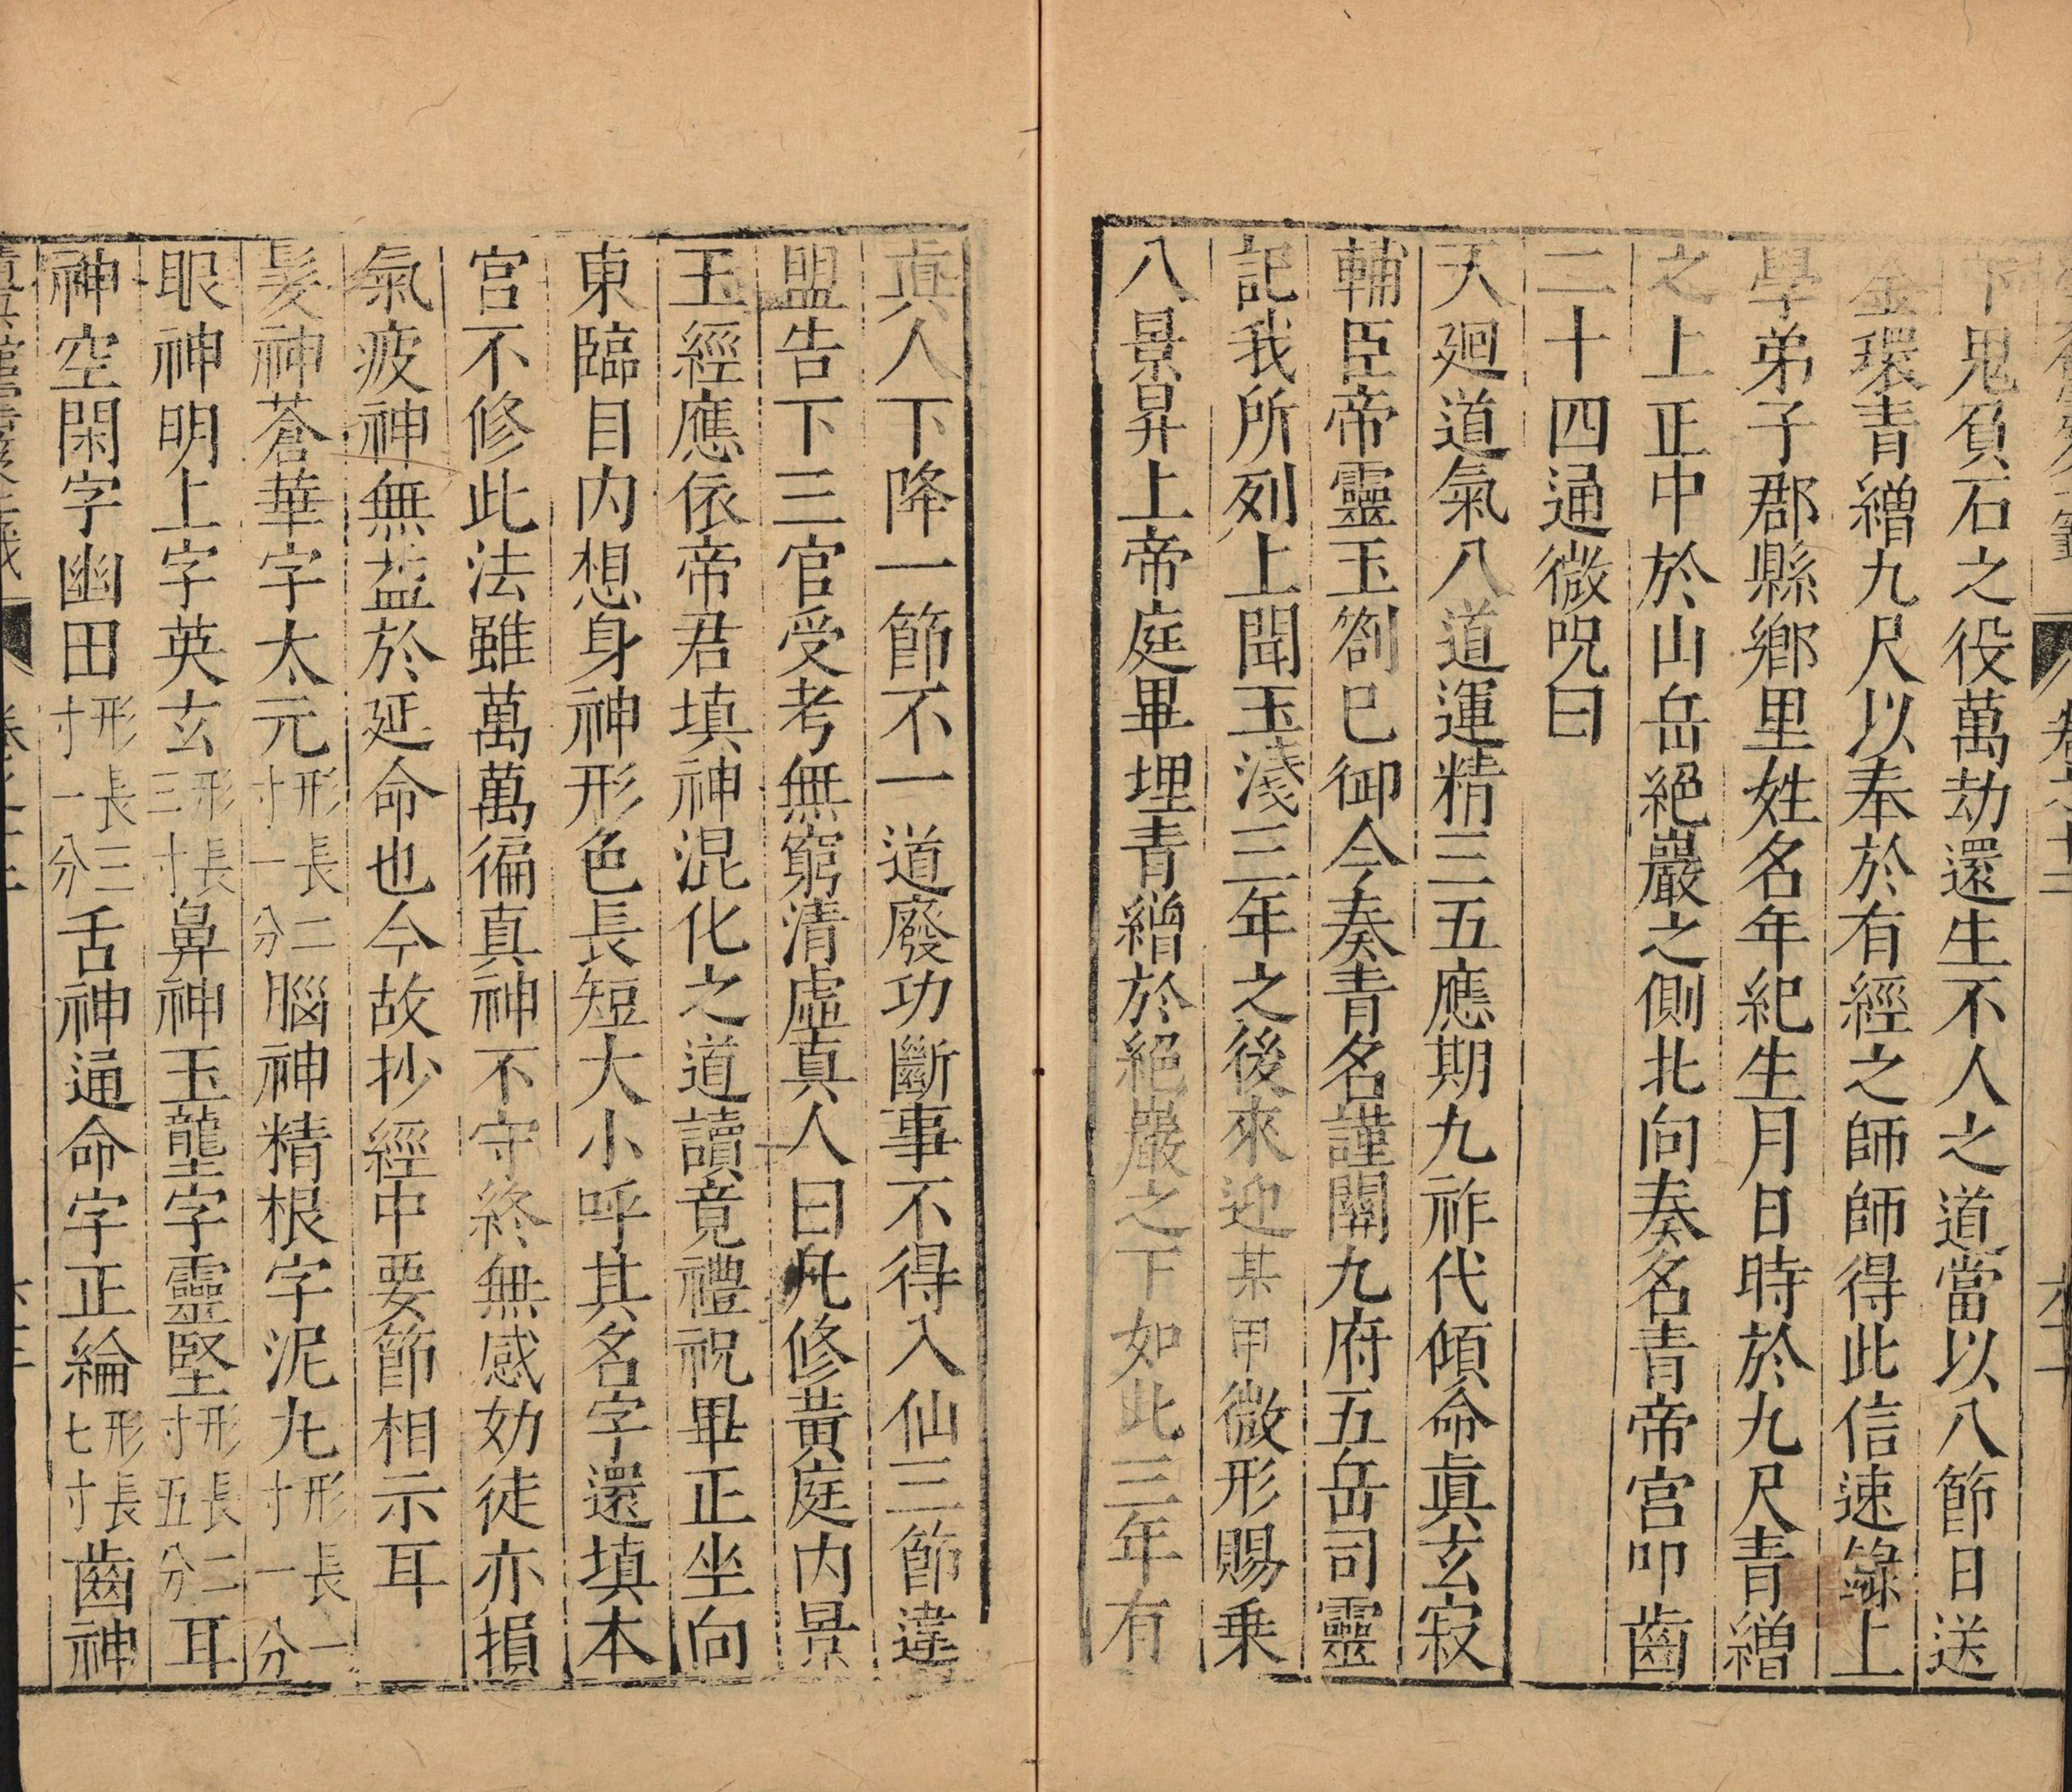 下鬼負石之役萬劫還生不人之道當以八節日送
金環青繒九尺以奉於有經之師師得此信速錄上
學弟子郡縣鄉里姓名年紀生月日時於九尺青繒
之上正中於山岳絕巖之側北向奏名青帝宮叩齒
二十四通微咒曰
天廻道氣八道運精三五應期九祚代傾命真玄寂
輔臣帝靈玉劄巳御今奏青名謹關九府五岳司靈
記我所列上聞玉淺三年之後來迎某甲微形賜乗
八景昇上帝庭畢埋青繒於絕巖之下如此三年有
真人下降一節不一道廢功斷事不得入仙三節違
盟告下三官受考無窮清虛真人曰凡修黃庭内景
玉經應依帝君填神混化之道讀竟禮祝畢正坐向
東臨目内想身神形色長短大小呼其名字還填本
宮不修此法雖萬萬徧真神不守終無感効徒亦損
氣疲神無益於延命也今故抄經中要節相示耳
髮神蒼華字太元形長二寸一分腦神精根字泥九形長一寸一分
眼神明上字英玄形長三寸鼻神玉壟字靈堅形長二寸五分耳
神空閑字幽田形長三寸一分舌神通命字正綸形長七寸齒神